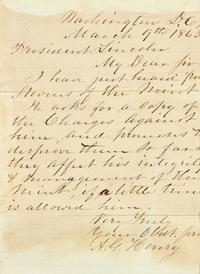 Washington D.C.
March 9th 1863
President Lincoln
My Dear Sir
I have just
of the Mint
He asks for a copy of
the Charges against
him, and promises to
disprove them so far as
they affect his integrity
& management of the
Mint, if a little time
is allowed him.
Very Truly
Your Obt
A.G. Henry